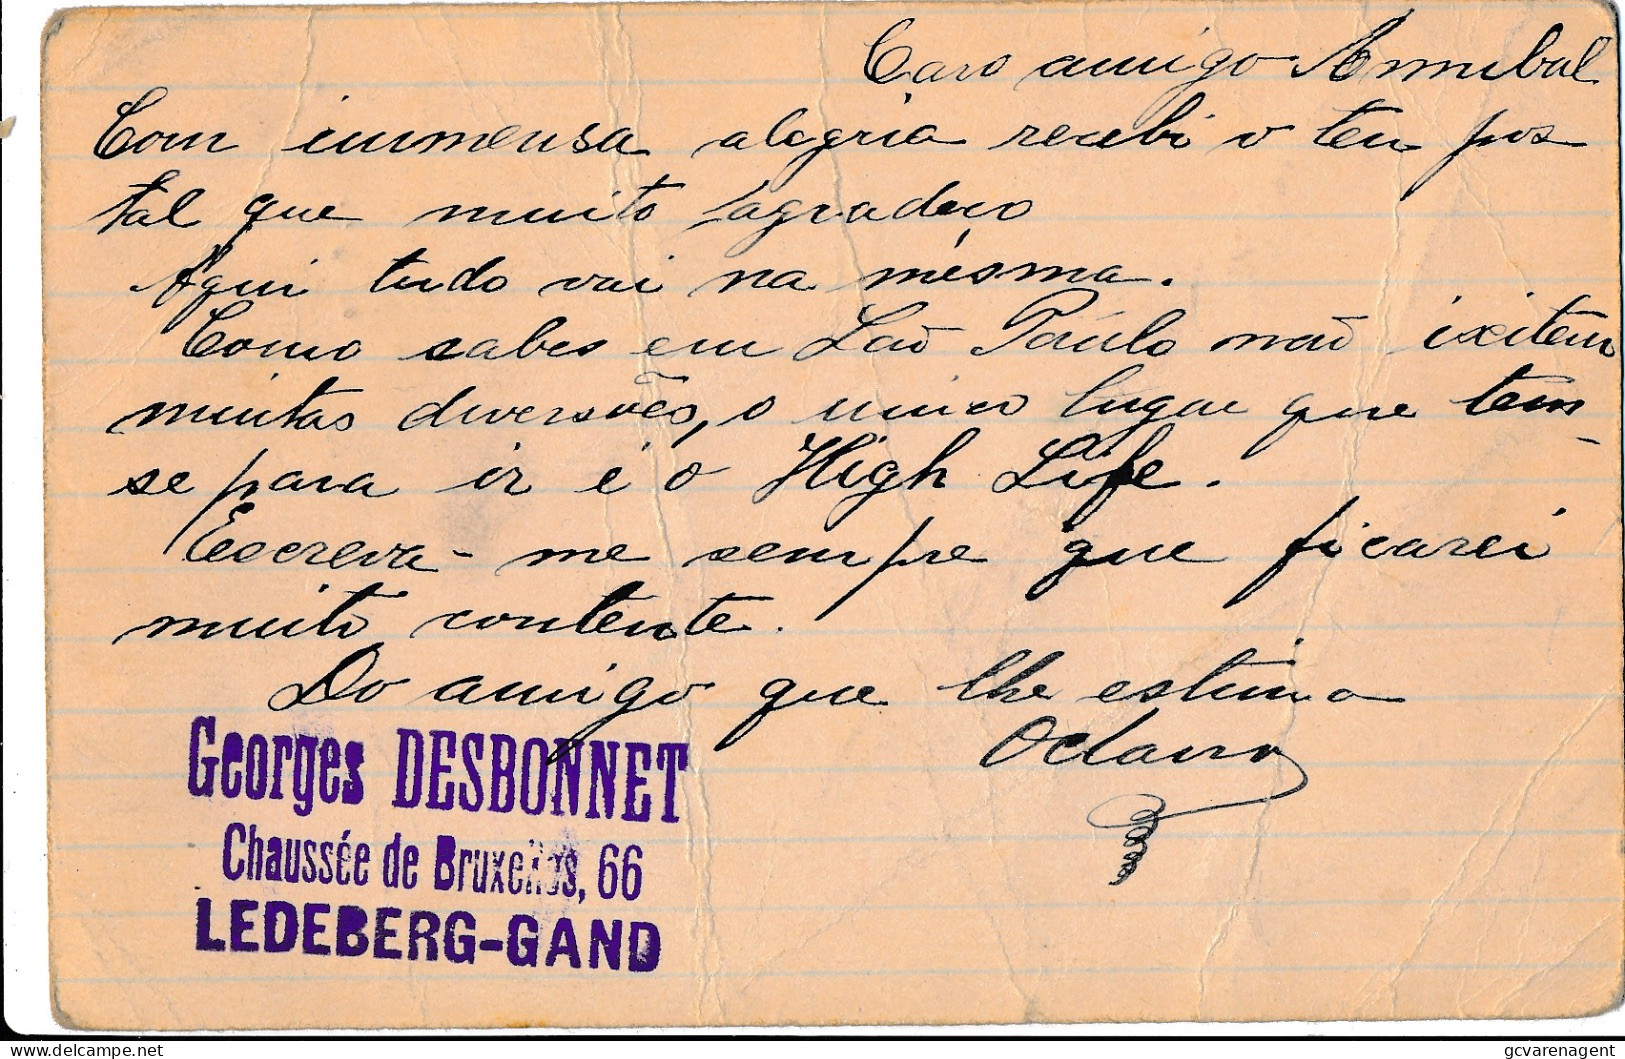 Caro amigo Annibal
Com immensa alegria recebi o teu pos
tal que muito agradeco
Aqui tudo vai na mésma.
Como sabes em Saõ Paúlo naõ ixitem
muitas diversões, o unico lugar que tem-
se para ir é o High Life.
Escreva-me sempre que ficarei
muito contente.
Do amigo que lhe estima
Octavio
Georges DESBONNET
Chaussée de Bruxelles, 66
LEDEBERG-GAND
delcampe.net
gcvarenagent